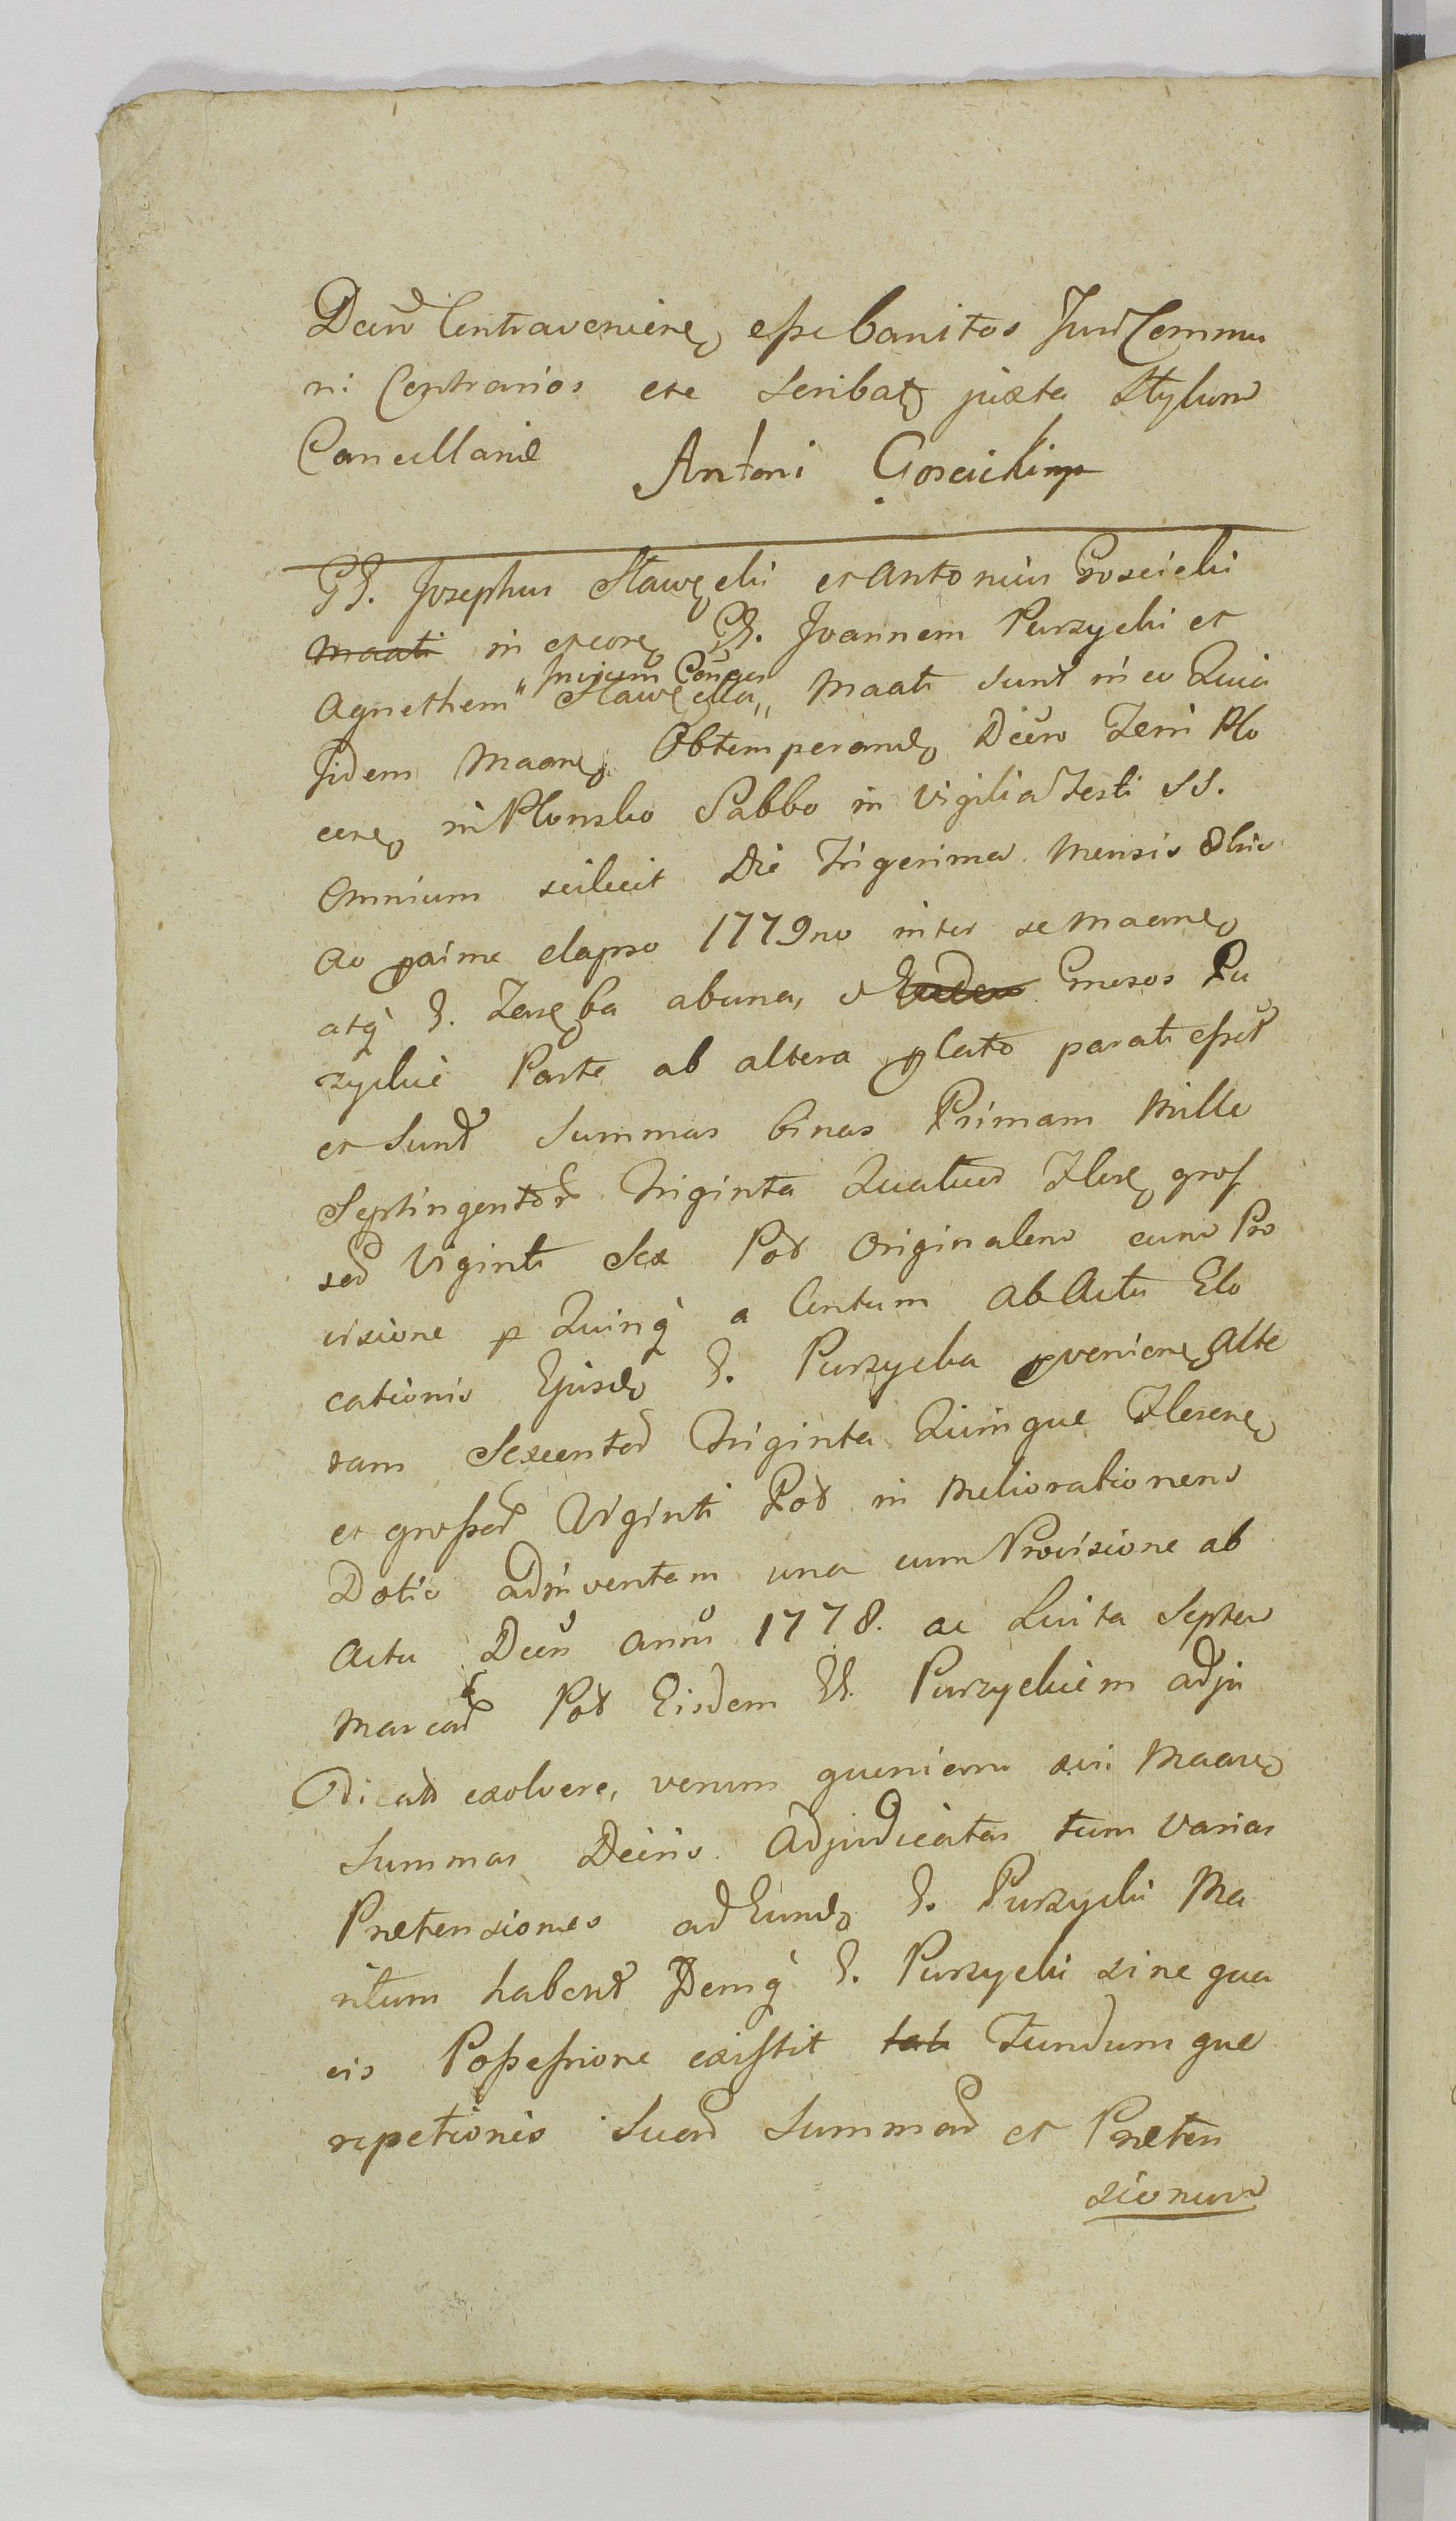 Decro Contravenien, esse banitos Juri Commu
ni Contrarios etc Scribat juxta Stylum
Cancellariae Antoni Goscicki mp
GG. Josephus Stawęcki et Antonius Gościcki
maati in et cone GG. Joannem Purzycki et
Agnethem Stawęcka „ maati sunt in eo Quia
" Invicem Conges
Iidem maane Obtemperand Decro Terri Plo
cen in Płonsko Sabbo in Vigilia Festi SS.
Omnium scilicet Die Trigesima Mensis 8bris
Ao pxime elapso 1779no inter se maane
atq G. ab una, et Gnesos Pu
rzyckie Parte ab altera plato parati essent
et sunt Summas binas Primam Mille
Septingentor Triginta Quatuor Flore gros
sor Viginti Sex Pol Originalem cum Pro
visione p Quinq a Centum ab Actu Elo
cationis Ejusd G. Purzycka pvenien Alte
ram Sexcentor Triginta Quinque Floren
et grossor Viginti Pol in Meliorationem
Dotis adinventam una cum Provisione ab
Actu Decri anni 1778. ac Luita Septem
Marcar Pol Eisdem GG. Purzyckiem adju
dicatu exolvere, verum quoniam sui Maane
Summas Decris Adjudicatas tum Varias
Praetensiones ad Eund G. Purzycki Ma
ritum habent Demq G. Purzycki sine qua
vis Possessione existit tali Fundumque
repetionis Suar Summar et Praeten
sionum